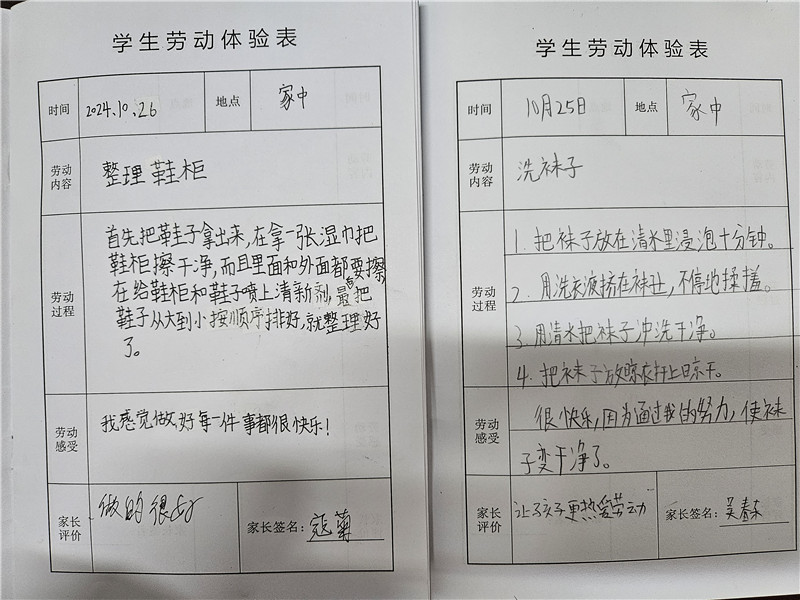 学生劳动体验表
时间 2024.10.26 地点 家中
劳动内容 整理鞋柜
劳动过程
首先把鞋子拿出来,在拿一张湿巾把
鞋柜擦干净,而且里面和外面都要擦
在给鞋柜和鞋子喷上清新剂,最后把
鞋子从大到小按顺序排好,就整理好
了。
劳动感受 我感觉做好每一件事都很快乐!
家长评价 做的很好 家长签名: 寇菊
学生劳动体验表
时间 10月25日 地点 家中
劳动内容 洗袜子
劳动过程
1. 把袜子放在清水里浸泡十分钟。
2. 用洗衣液挤在袜让,不停地揉搓。
3. 用清水把袜子冲洗干净。
4. 把袜子放晾衣杆上晾干。
劳动感受
很快乐,因为通过我的努力,使袜
子变干净了。
家长评价 让孩子更热爱劳动 家长签名: 吴春东